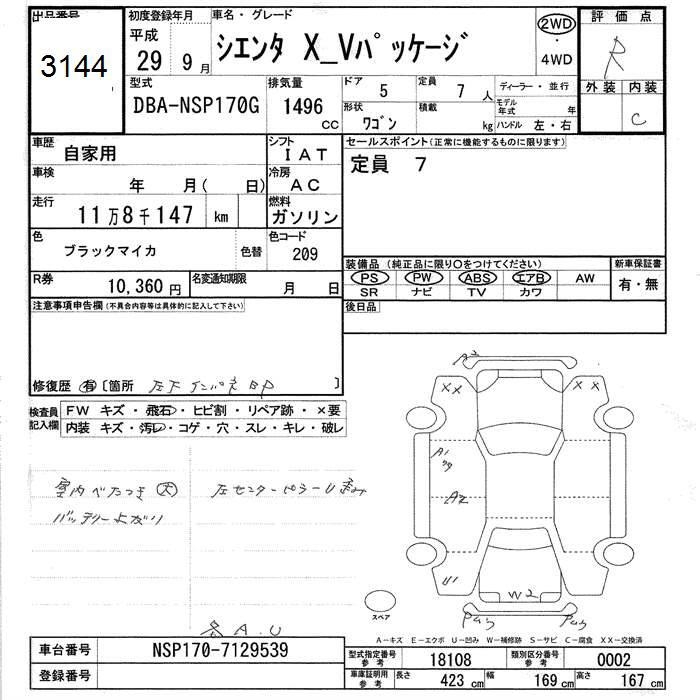 出品番号
3144
初度登録年月
平成
29 9 月
車名・グレード
シエンタ X_Vパッケージ
2WD
・
4WD
評価点
R
外装 内装
C
型式
DBA-NSP170G
排気量
1496
CC
ドア
5
定員
7 人
形状
ワゴン
積載
kg
ディーラー・並行
モデル
年式 年
ハンドル 左・右
車歴
自家用
シフト
IAT
セールスポイント(正常に機能するものに限ります)
定員 7
車検
年 月( 日)
冷房
AC
走行
11万8千147 km
燃料
ガソリン
色
ブラックマイカ
色替
色コード
209
R券
10,360 円
名変通知期限
月 日
装備品 (純正品に限り○をつけてください)
PS PW ABS エアB AW
SR ナビ TV カワ
新車保証書
有・無
後日品
注意事項申告欄(不具合内容等は具体的に記入して下さい)
修復歴 有 〔箇所 〕
検査員
記入欄
FW キズ・飛石・ヒビ割・リペア跡・×要
内装 キズ・汚レ・コゲ・穴・スレ・キレ・破レ
室内べたつき大
左センターピラーU済み
バッテリーよわり
A2
XX
XX
A1
A2
U1
W2
スペア
A.U
A-キズ E-エクボ U-凹み W-補修跡 S-サビ C-腐食 XX-交換済
車台番号
NSP170-7129539
登録番号
型式指定番号
参考
18108
類別区分番号
参考
0002
車庫証明用
参考
長さ
423 cm
幅
169 cm
高さ
167 cm